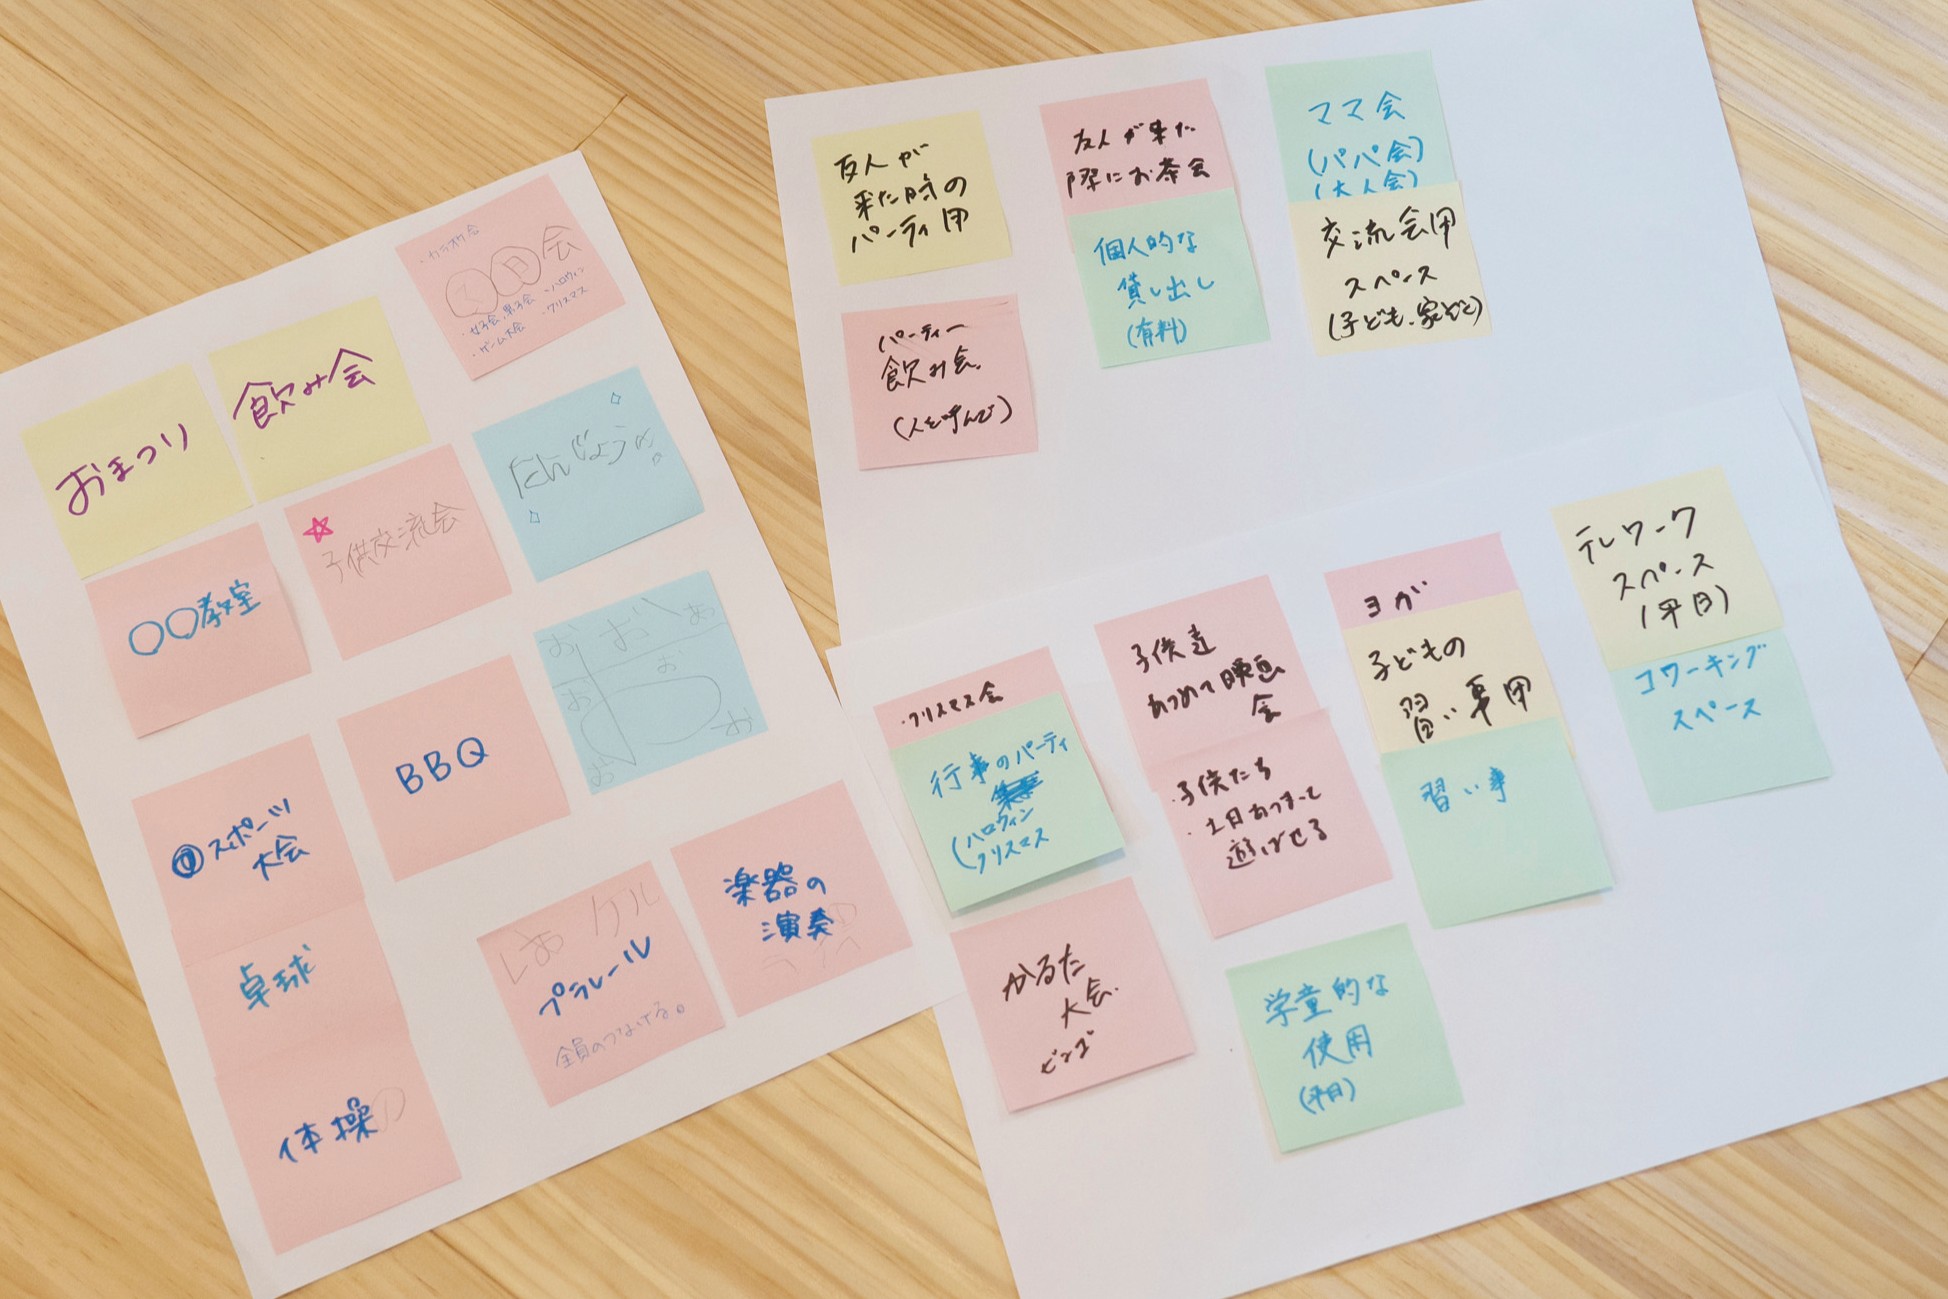 ・カラオケ会
〇月会
・女子会、男子会 ・ハロウィン
・ゲーム大会 ・クリスマス
飲み会
おまつり
たんじょう会
子供交流会
〇〇教室
お お お
お お
お お
BBQ
スポーツ
大会
楽器の
演奏
プラレール
全員のつなげる。
卓球
体操
友人が
来た時の
パーティ用
友人が来た
際にお茶会
個人的な
貸し出し
(有料)
ママ会
(パパ会)
(大人会)
交流会用
スペース
(子ども、家など)
パーティー
飲み会
(人を呼んで)
テレワーク
スペース
(平日)
コワーキング
スペース
ヨガ
子どもの
習い事用
習い事
子供達
あつめて映画
会
・子供たち
・1日あつまって
遊ばせる
・クリスマス会
行事のパーティ
(ハロウィン
クリスマス
かるた
大会.
ビンゴ
学童的な
使用
(平日)